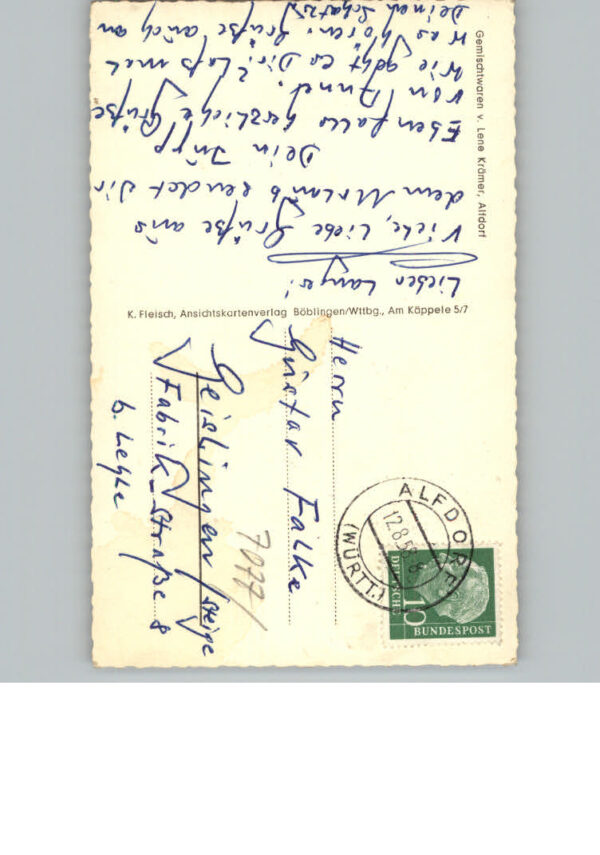 Lieber Langer!
Viele, liebe Grüße aus
dem Urlaub sendet Dir
Dein Jupp
Ebenfalls herzliche Grüße
von Annel.
Wie geht es Dir? Laß mal
was hören. Grüße auch an
Deinen Schatz.
Gemischtwaren v. Lene Krämer, Alfdorf
K. Fleisch, Ansichtskartenverlag Böblingen/Wttbg., Am Käppele 5/7
Herrn
Gustav Falke
Geislingen/Steige
Fabrik-Straße 8
b. Lehle
7077/
ALFDORF
12.8.58-8
(WÜRTT.)
10
DEUTSCHE
BUNDESPOST